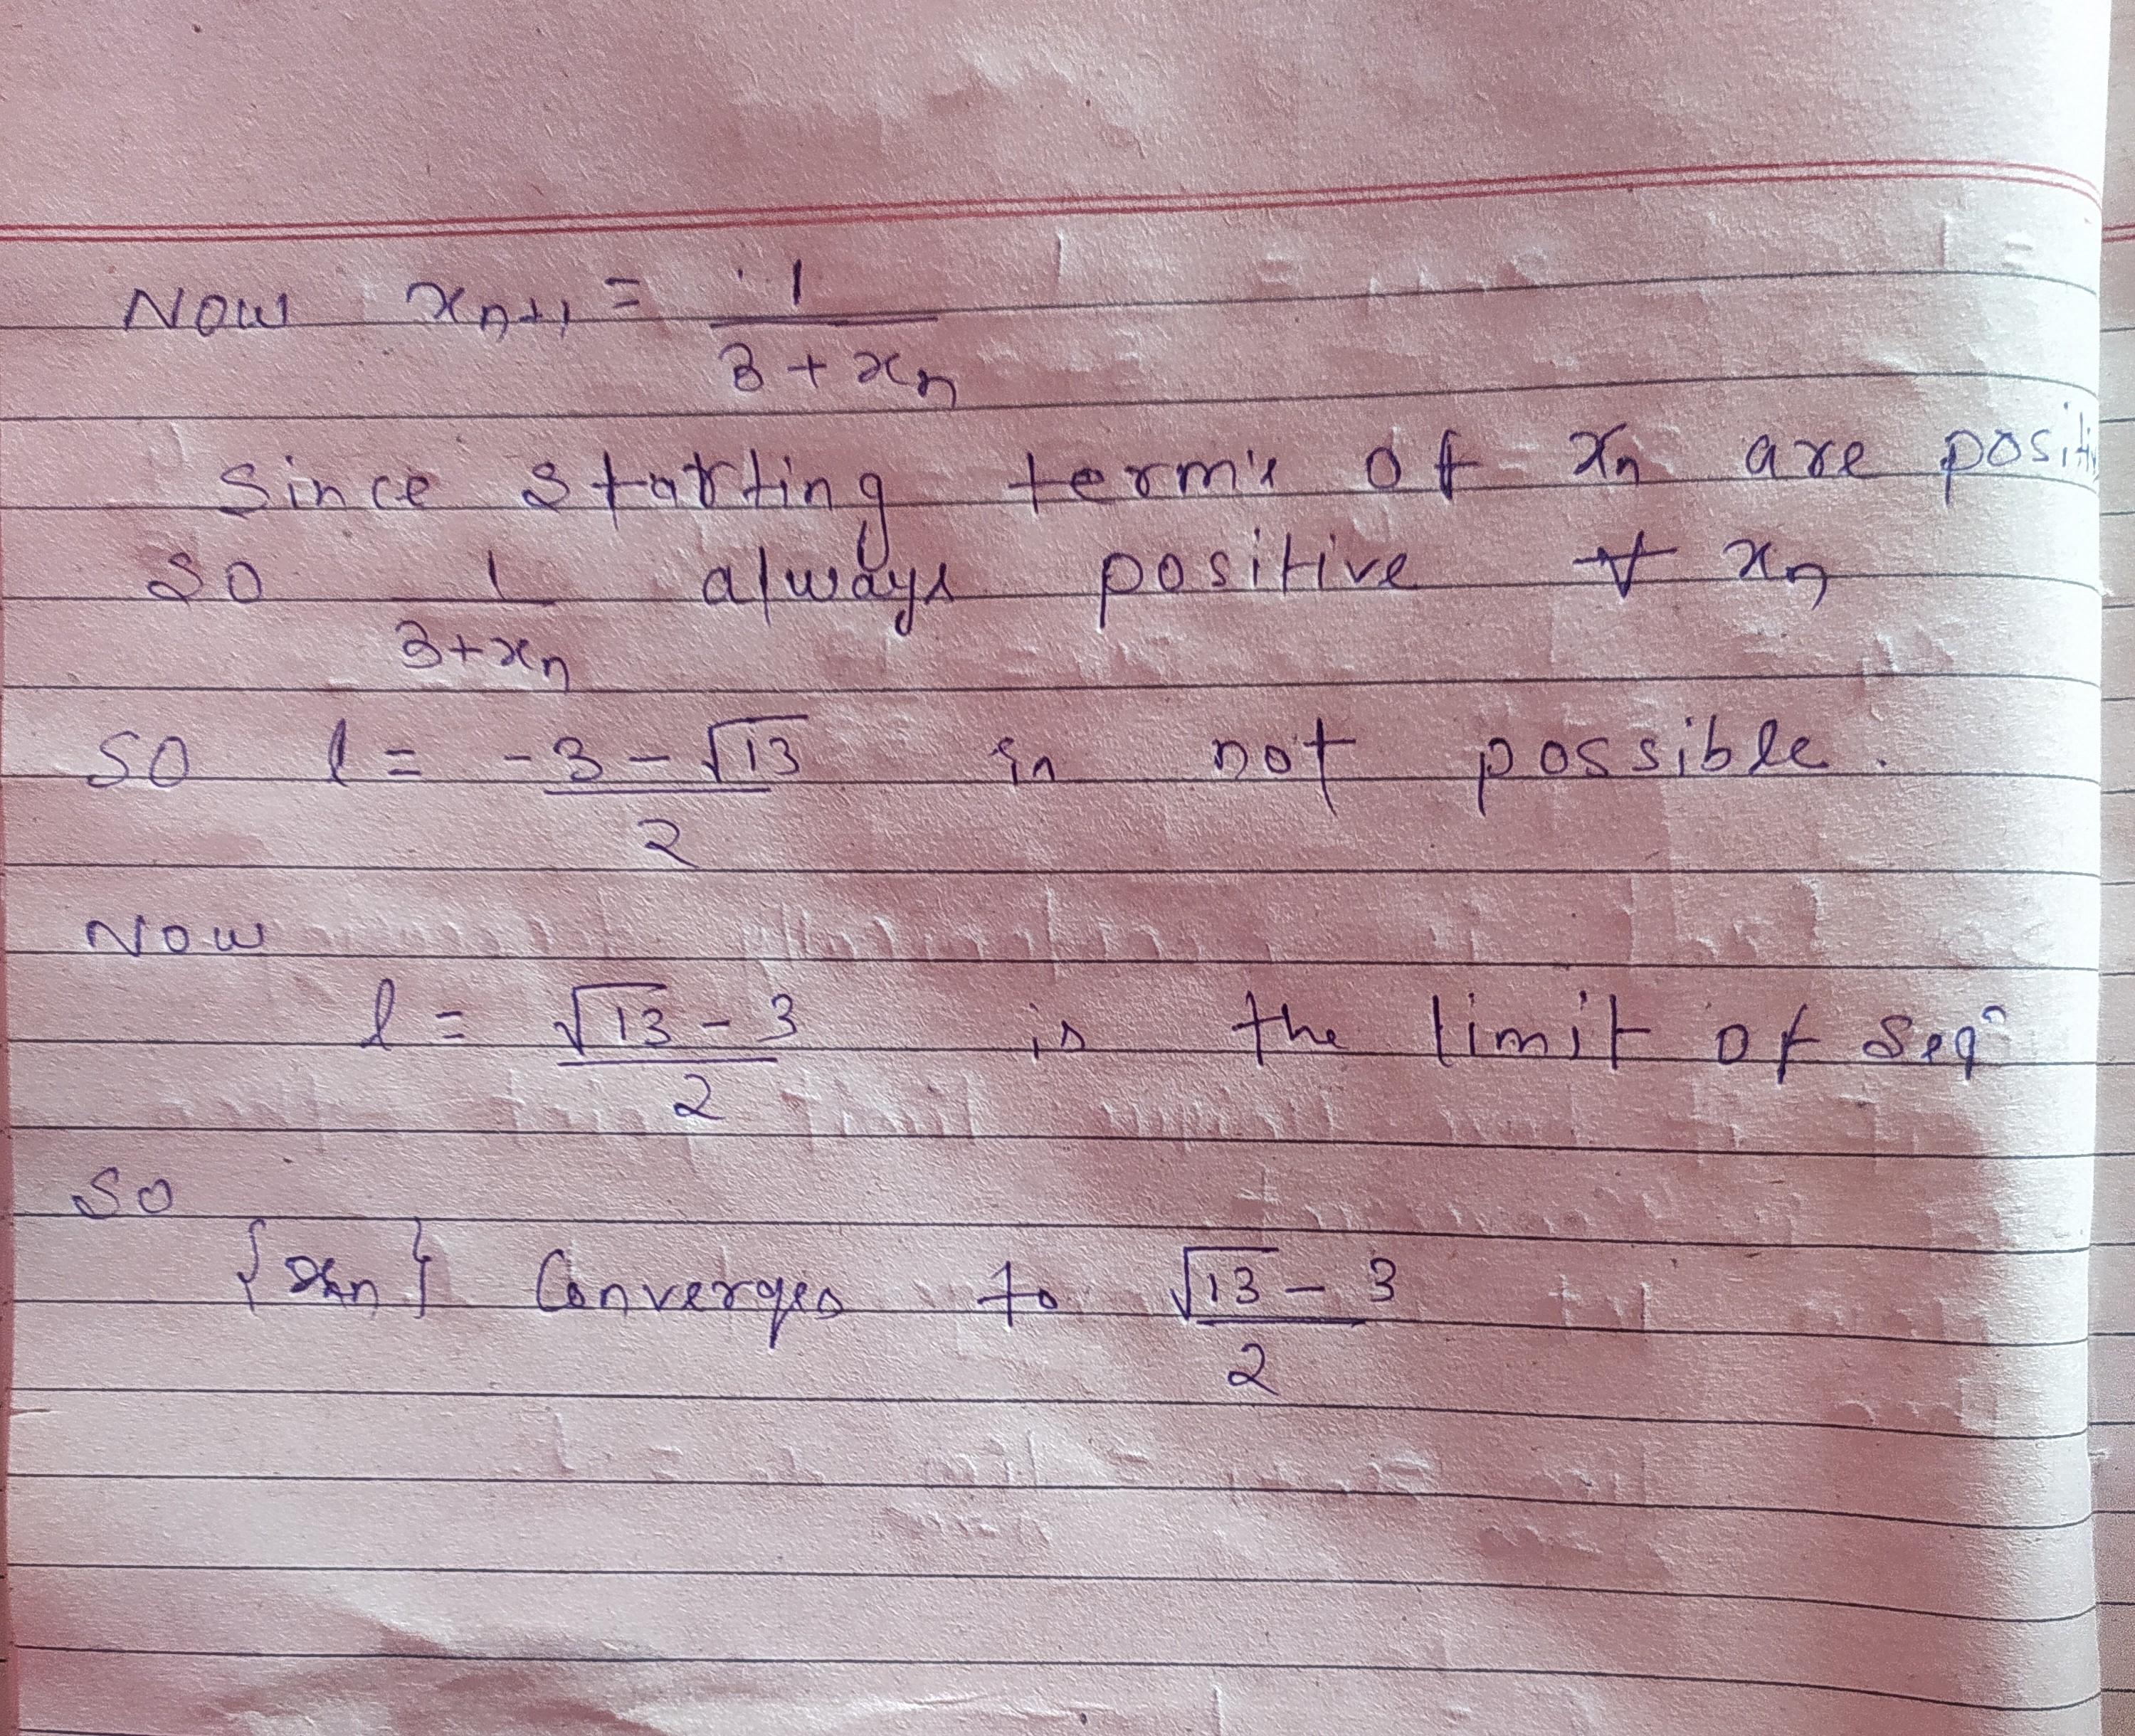 Now x_{n+1} = 1/(3 + x_n)
Since starting term's of x_n are positi
So 1/(3+x_n) always positive ∀ x_n
So l = (-3-√13)/2 is not possible.
Now
l = (√13 - 3)/2 is the limit of Seqⁿ
So
{x_n} Converges to (√13 - 3)/2